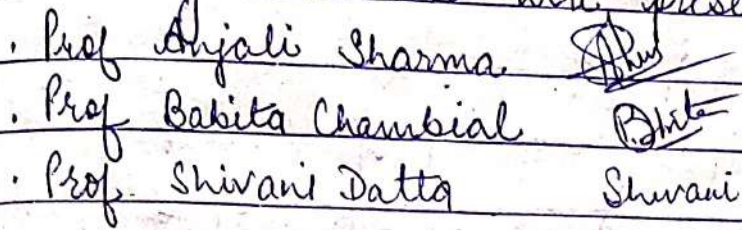 were prese
. Prof Anjali Sharma
. Prof Babita Chambial
. Prof. Shivani Datta Shivani